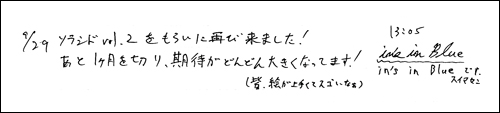 9/29 ソラシド vol.2 をもらいに再び来ました!
あと1ヶ月を切り、期待がどんどん大きくなってます!
(皆、絵が上手くてスゴいなぁ)
13:05
in's in Blue
in's in Blue です。
スイマセン